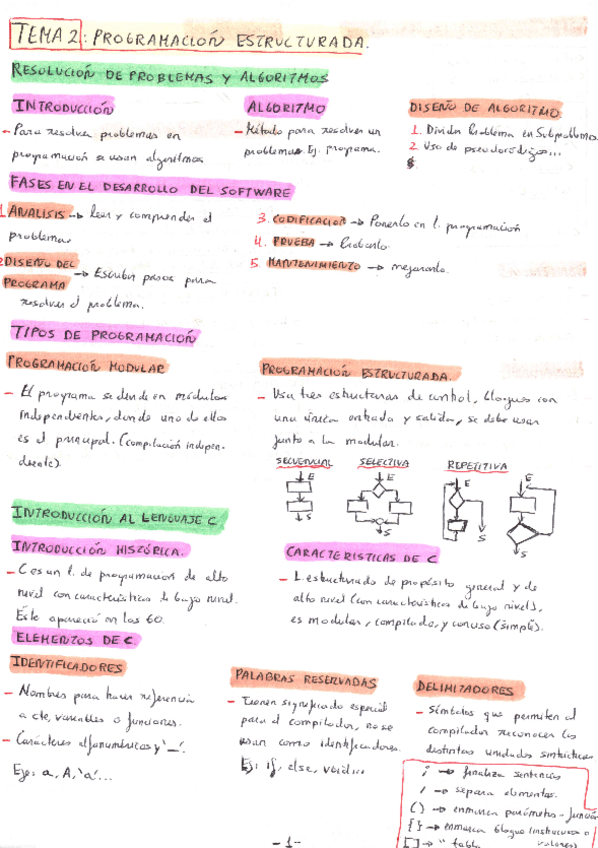 TEMA 2: PROGRAMACIÓN ESTRUCTURADA.
RESOLUCIÓN DE PROBLEMAS Y ALGORITMOS
INTRODUCCIÓN
- Para resolver problemas en
programación se usan algoritmos
ALGORITMO
- Método para resolver un
problema. Ej. programa.
DISEÑO DE ALGORITMO.
1. Dividir Problema en Subproblemas
2. Uso de pseudocódigos...
FASES EN EL DESARROLLO DEL SOFTWARE
1. ANALISIS → leer y comprender el
problema.
2. DISEÑO DEL
PROGRAMA → Escribir pasos para
resolver el problema.
3. CODIFICACION → Ponerlo en l. programación
4. PRUEBA → Probarlo.
5. MANTENIMIENTO → mejorarlo.
TIPOS DE PROGRAMACIÓN
PROGRAMACIÓN MODULAR
- El programa se divide en módulos
independientes, donde uno de ellos
es el principal. (compilación indepen-
diente).
PROGRAMACIÓN ESTRUCTURADA.
- Usa tres estructuras de control, bloques con
una única entrada y salida, se debe usar
junto a la modular.
SECUENCIAL SELECTIVA REPETITIVA
E E E E
S S S S
INTRODUCCIÓN AL LENGUAJE C
INTRODUCCIÓN HISTÓRICA.
- C es un l. de programación de alto
nivel con características de bajo nivel.
Este apareció en los 60.
CARACTERISTICAS DE C
- L. estructurado de propósito general y de
alto nivel (con características de bajo nivel),
es modular, compilado, y conciso (simple).
ELEMENTOS DE C
IDENTIFICADORES
- Nombres para hacer referencia
a cte, variables o funciones.
- Carácteres alfanuméricos y '_'.
Ejs: a, A, 'a'...
PALABRAS RESERVADAS
- Tienen significado especial
para el compilador, no se
usan como identificadores.
Ej: if, else, void...
DELIMITADORES
- Símbolos que permiten al
compilador reconocer las
distintas unidades sintácticas
; → finaliza sentencias
, → separa elementos.
( ) → enmarca parámetros - función
{ } → enmarca bloque (instrucciones o
valores)
[ ] → " tabla
- 1 -